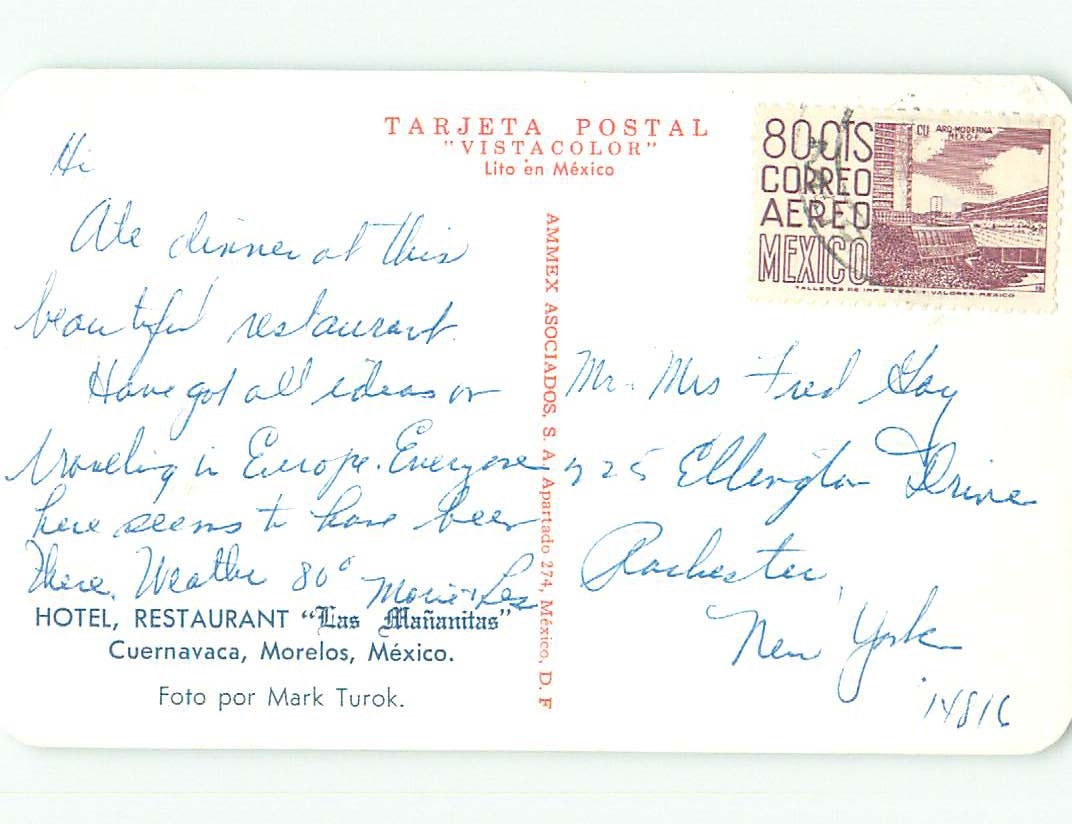 TARJETA POSTAL
"VISTACOLOR"
Lito en México
80 CTS
CORREO
AEREO
MEXICO
CU ARQ-MODERNA
MEX-D-F.
TALLERES DE IMP. DE EST. Y VALORES-MEXICO
Hi
Ate dinner at this
beautiful restaurant.
Have got all ideas on
traveling in Europe. Everyone
here seems to have been
there. Weather 80°
Marie + Les
HOTEL, RESTAURANT "Las Mañanitas"
Cuernavaca, Morelos, México.
Foto por Mark Turok.
AMMEX ASOCIADOS, S. A. Apartado 274, México, D. F
Mr. Mrs Fred Gay
725 Ellington Drive
Rochester,
New York
14816